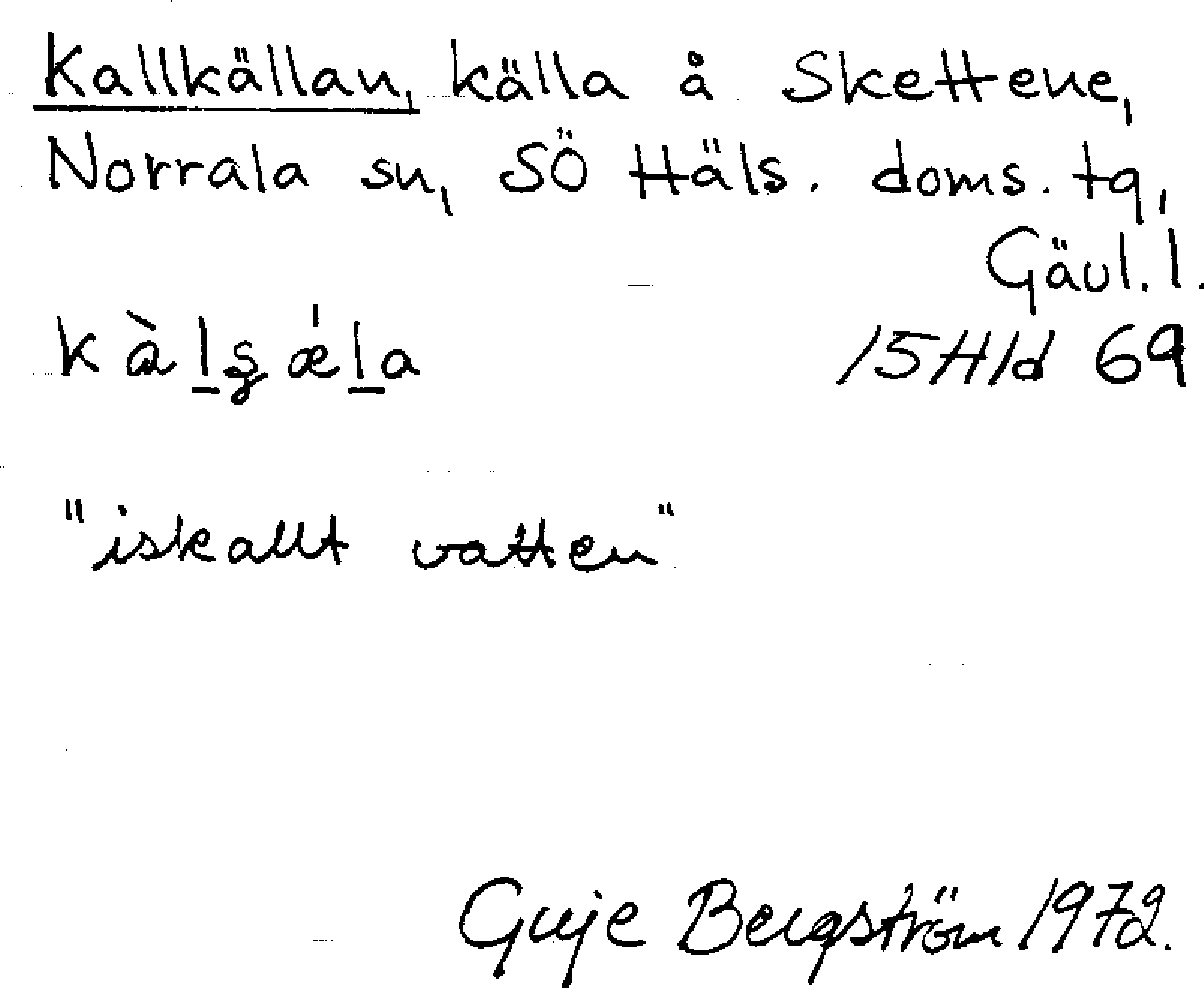 Kallkällan, källa å Skettene,
Norrala sn, SÖ Häls. doms. tg,
Gävl. l.
kàl̲ʂǽl̲a 15H1d 69
"iskallt vatten"
Guje Bergström 1972.